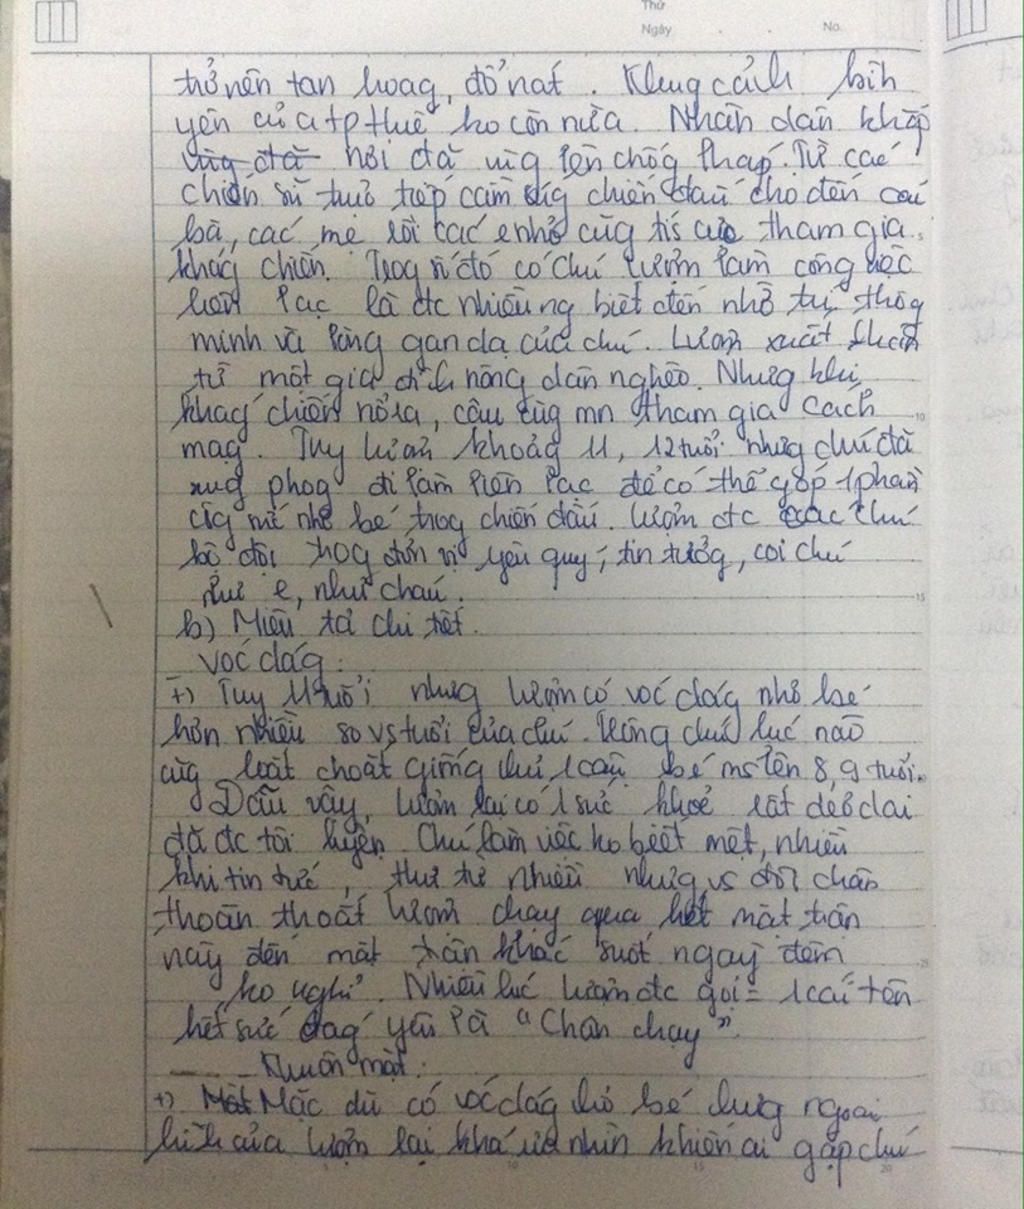 Thứ
Ngày No.
trở nên tan hoag, đổ nát. Khug cảnh bình
yên của tp Huế ko còn nữa. Nhân dân khắp
vùg đã nơi đã vùg lên chốg Pháp. Từ các
chiến sĩ trực tiếp cầm súg chiến đấu cho đến các
bà, các mẹ rồi các e nhỏ cũg tích cực tham gia
khág chiến. Trog số đó có chú Lượm làm công việc
liên lạc là đc nhiều ng biết đến nhờ trí thôg
minh và lòng gan dạ của chú. Lượm xuất thân
từ một gia đình nông dân nghèo. Nhưg khi
khág chiến nổ ra, cậu cùg mn tham gia cách
mạg. Tuy Lượm khoảg 11, 12 tuổi nhưg chú đã
xug phog đi làm liên lạc để có thể góp 1 phần
nhỏ bé trog chiến đấu. Lượm đc các chú
bộ đội trog đơn vị yêu quý, tin tưởg, coi chú
như e, như cháu.
b) Miêu tả chi tiết.
Vóc dág:
+) Tuy 11 tuổi nhưg Lượm có vóc dág nhỏ bé
hơn nhiều so vs tuổi của chú. Trông chú lúc nào
cũg loắt choắt giống như 1 cậu bé ms lên 8, 9 tuổi.
Dẫu vậy, Lượm lại có 1 sức khoẻ rất dẻo dai
đã đc tôi luyện. Chú làm việc ko biết mệt, nhiều
khi tin tức, thư từ nhiều nhưg vs đôi chân
thoăn thoắt Lượm chạy qua hết mặt trận
này đến mặt trận khác suốt ngày đêm
ko nghỉ. Nhiều lúc Lượm đc gọi = 1 cái tên
hết sức đág yêu là "Chân chạy".
Khuôn mặt:
+) Mặt Mặc dù có vóc dág nhỏ bé nhưg ngoại
hình của Lượm lại khá ưa nhìn khiến ai gặp chú